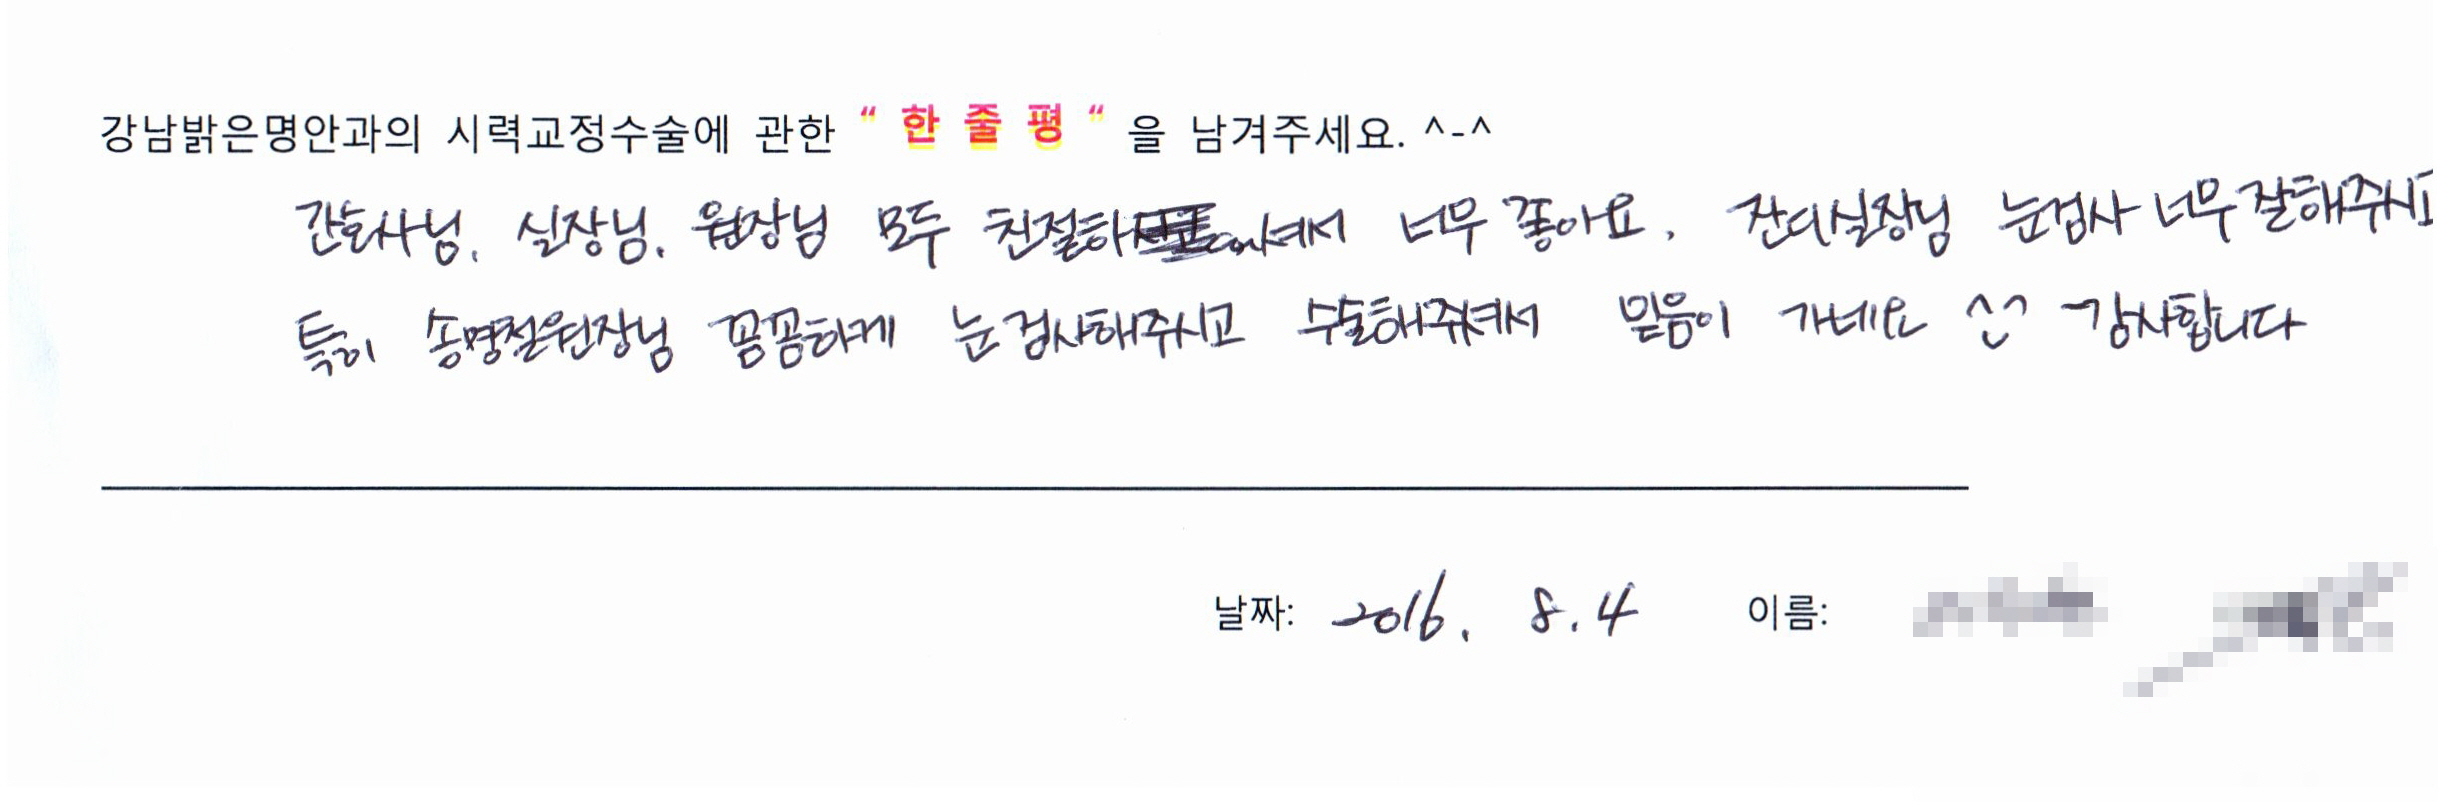 강남밝은명안과의 시력교정수술에 관한 “ 한 줄 평 “ 을 남겨주세요. ^-^
간호사님, 실장님, 원장님 모두 친절하셔서 너무 좋아요. 잔디실장님 눈검사 너무 잘해주시고
특히 송명철원장님 꼼꼼하게 눈검사해주시고 수술해주셔서 믿음이 가네요 ^^ 감사합니다
날짜: 2016. 8. 4 이름: